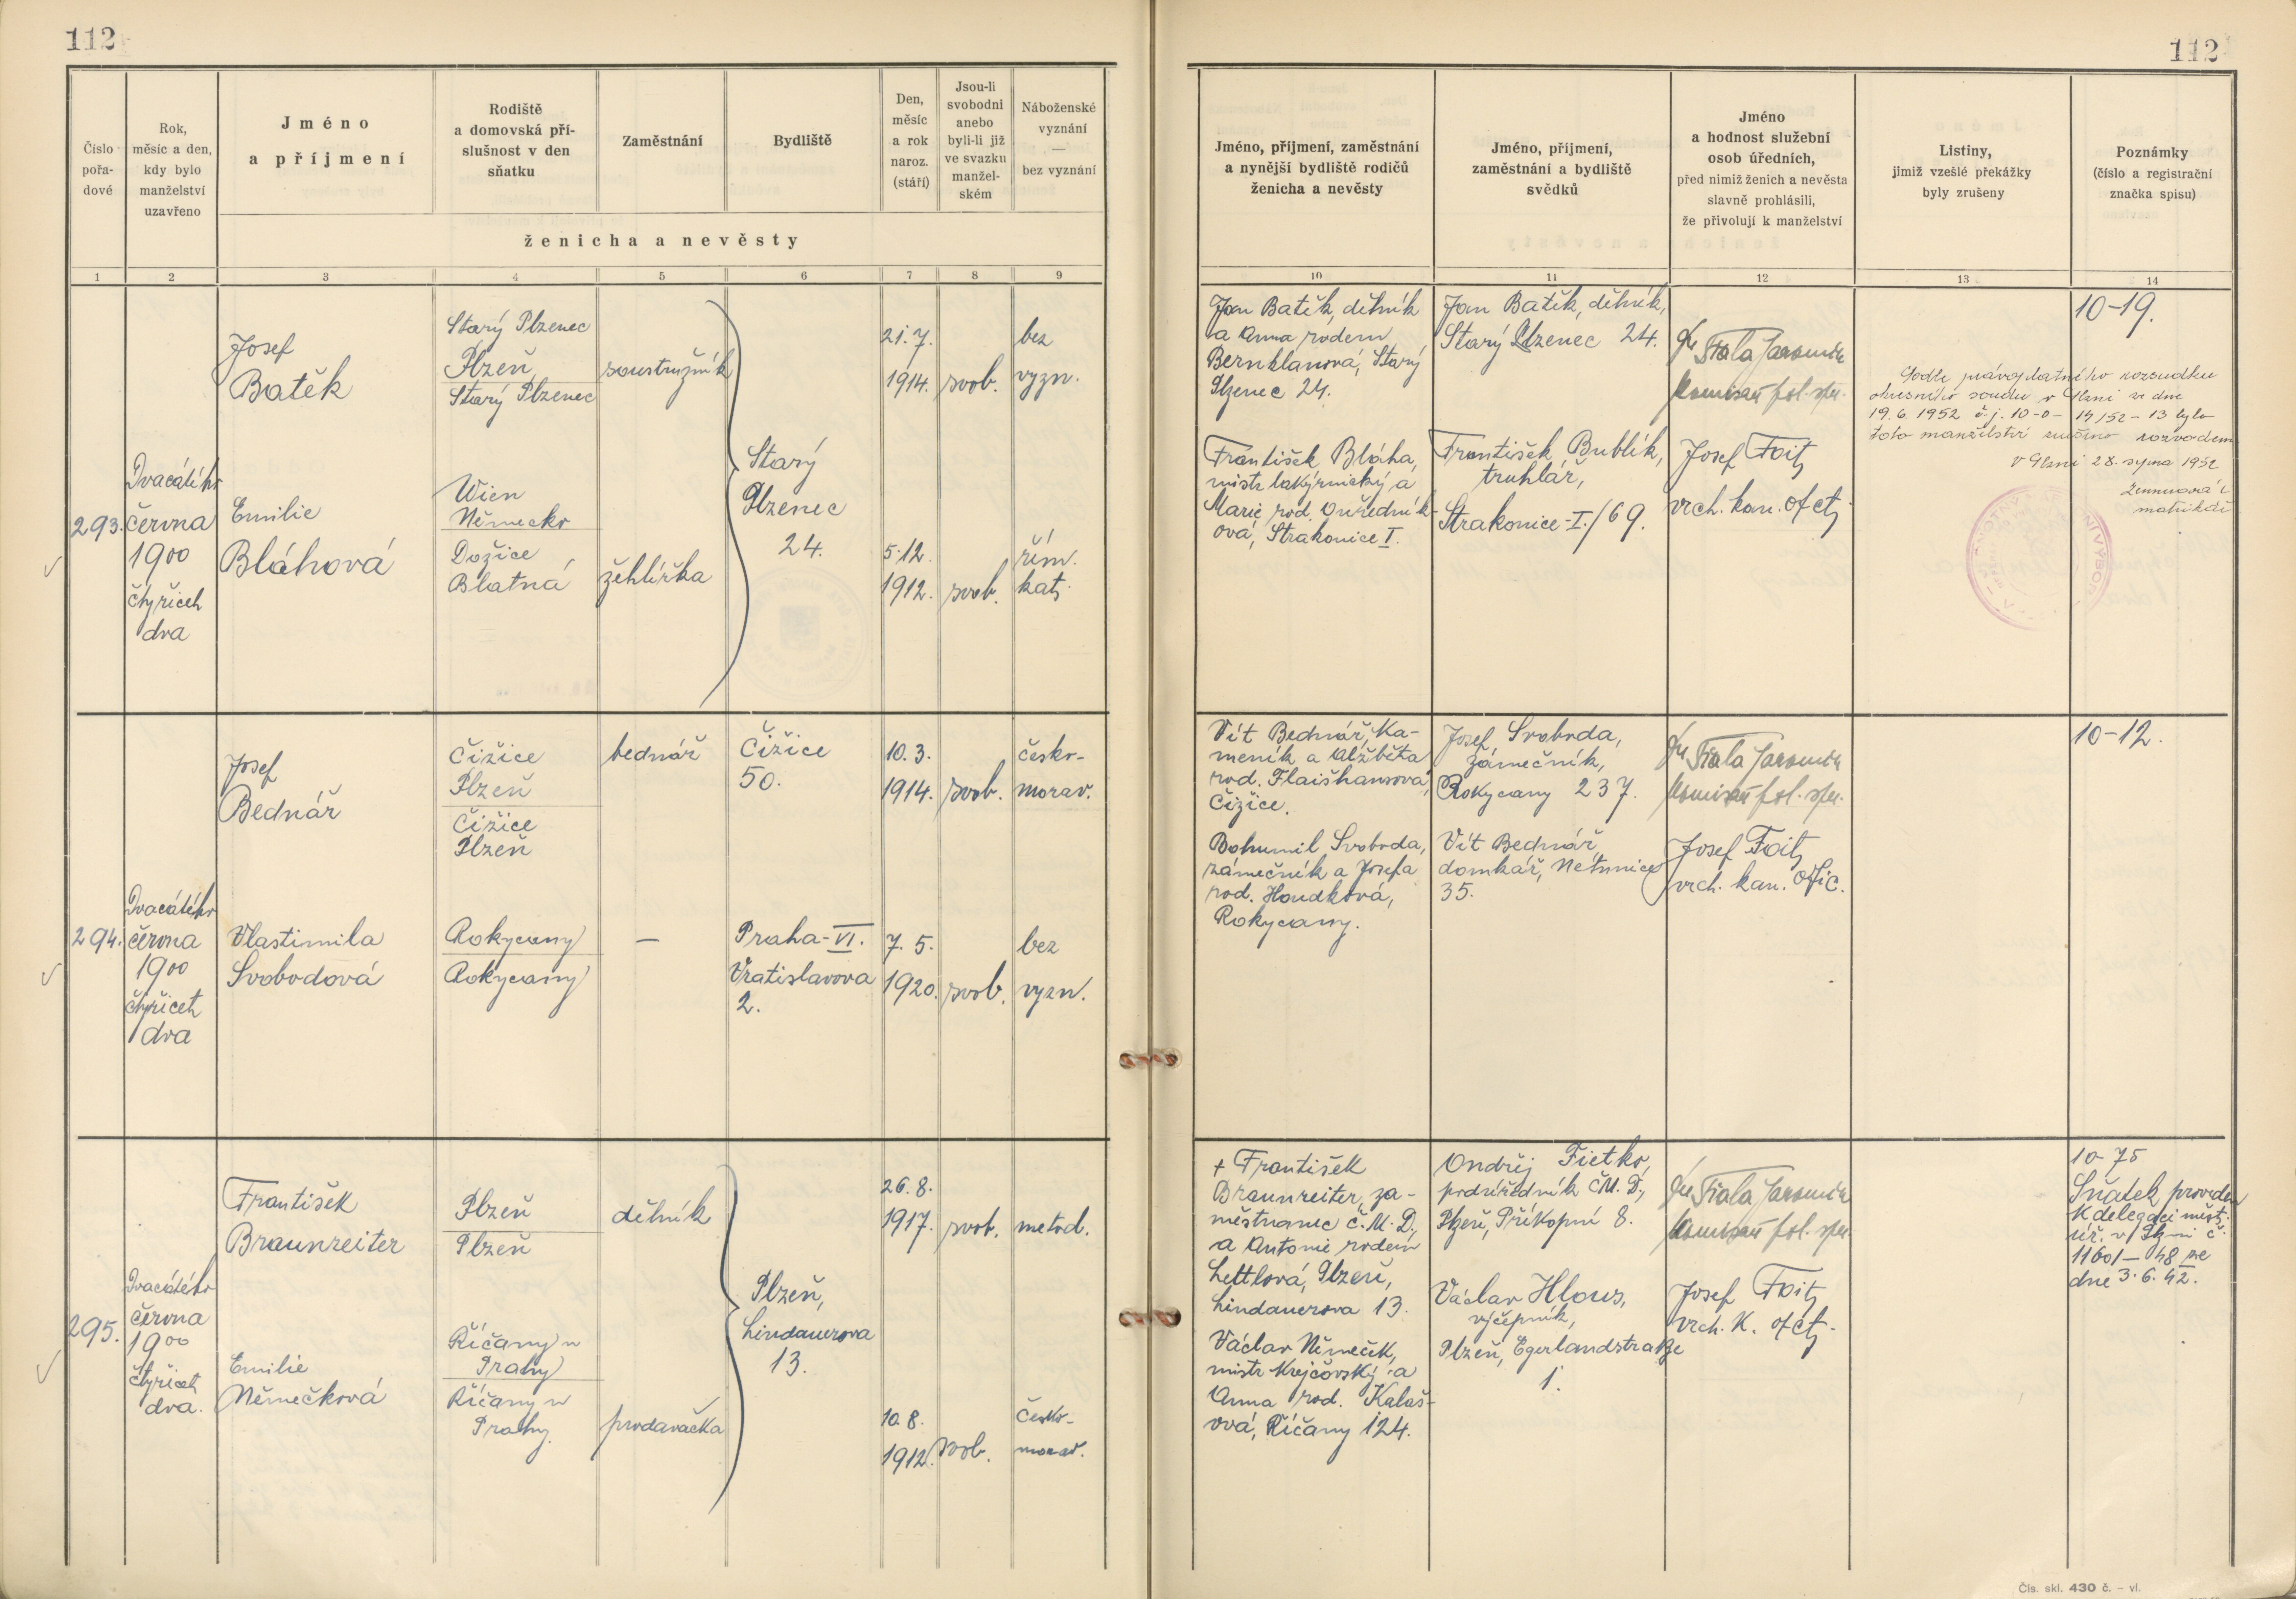 112
112
Číslo
pořa-
dové
Rok,
měsíc a den,
kdy bylo
manželství
uzavřeno
Jméno
a příjmení
Rodiště
a domovská pří-
slušnost v den
sňatku
Zaměstnání
Bydliště
Den,
měsíc
a rok
naroz.
(stáří)
Jsou-li
svobodni
anebo
byli-li již
ve svazku
manžel-
ském
Náboženské
vyznání
—
bez vyznání
ženicha a nevěsty
Jméno, příjmení, zaměstnání
a nynější bydliště rodičů
ženicha a nevěsty
Jméno, příjmení,
zaměstnání a bydliště
svědků
Jméno
a hodnost služební
osob úředních,
před nimiž ženich a nevěsta
slavně prohlásili,
že přivolují k manželství
Listiny,
jimiž vzešlé překážky
byly zrušeny
Poznámky
(číslo a registrační
značka spisu)
1 2 3 4 5 6 7 8 9 10 11 12 13 14
293.
Dvacátého
června
1900
čtyřicet
dva
Josef
Batěk
Starý Plzenec
Plzeň
Starý Plzenec
soustružník
21. 7.
1914.
svob.
bez
vyzn.
Emilie
Bláhová
Wien
Německo
Dožice
Blatná
žehlířka
Starý
Plzenec
24.
5. 12.
1912.
svob.
řím.
kat.
Jan Batěk, dělník
a Anna rodem
Bernklanová, Starý
Plzenec 24.
František Bláha,
mistr lakýrnický a
Marie rod. Ouředník-
ová, Strakonice I.
Jan Batěk, dělník,
Starý Plzenec 24.
František Bublík,
truhlář,
Strakonice-I./69.
Fiala Jaromír
komisař pol. spr.
Josef Foit,
vrch. kan. ofct.
10-19.
Podle právoplatného rozsudku
okresního soudu v Plzni ze dne
19. 6. 1952 č. j. 10-0- 14/52-13 bylo
toto manželství zrušeno rozvodem
V Plzni 28. srpna 1952
matrikář
294.
Dvacátého
června
1900
čtyřicet
dva
Josef
Bednář
Čižice
Plzeň
Čižice
Plzeň
bednář
Čižice
50.
10. 3.
1914.
svob.
česko-
morav.
Vlastimila
Svobodová
Rokycany
Rokycany
—
Praha-VI.
Vratislavova
2.
7. 5.
1920.
svob.
bez
vyzn.
Vít Bednář, ka-
meník a Alžběta
rod. Flaišhansová,
Čižice.
Bohumil Svoboda,
zámečník a Josefa
rod. Houdková,
Rokycany.
Josef Svoboda,
zámečník,
Rokycany 237.
Vít Bednář,
domkář, Netunice
35.
Fiala Jaromír
komisař pol. spr.
Josef Foit,
vrch. kan. ofic.
10-12.
295.
Dvacátého
června
1900
čtyřicet
dva.
František
Braunreiter
Plzeň
Plzeň
dělník
26. 8.
1917.
svob.
metod.
Emilie
Němečková
Říčany u
Prahy
Říčany u
Prahy.
prodavačka
Plzeň,
Lindauerova
13.
10. 8.
1912.
svob.
česko-
morav.
+ František
Braunreiter, za-
městnanec Č.M.D.,
a Antonie rodem
Lettlová, Plzeň,
Lindauerova 13.
Václav Němeček,
mistr krejčovský a
Anna rod. Kalaš-
ová, Říčany 124.
Ondřej Fietko,
podúředník ČM.D.,
Plzeň, Příkopní 8.
Václav Hlous,
výčepník,
Plzeň, Egerlandstraße
1.
Fiala Jaromír
komisař pol. spr.
Josef Foit,
vrch. k. ofct.
10-75
Sňatek proveden
k delegaci měst.
úř. v Plzni č.
11601-48 ze
dne 3. 6. 42.
Čís. skl. 430 č. – vl.